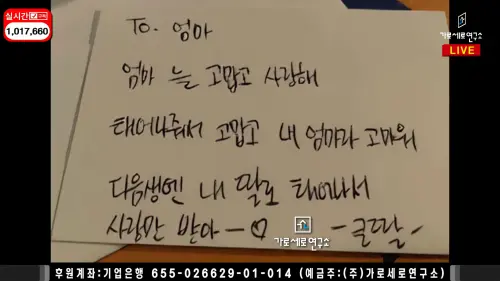 실시간
1,017,660
가로세로연구소
LIVE
To. 엄마
엄마 늘 고맙고 사랑해
태어나줘서 고맙고 내 엄마라 고마워
다음생엔 내 딸로 태어나서
사랑만 받아 - ♡ - 큰딸 -
가로세로연구소
후원계좌:기업은행 655-026629-01-014 (예금주:(주)가로세로연구소)